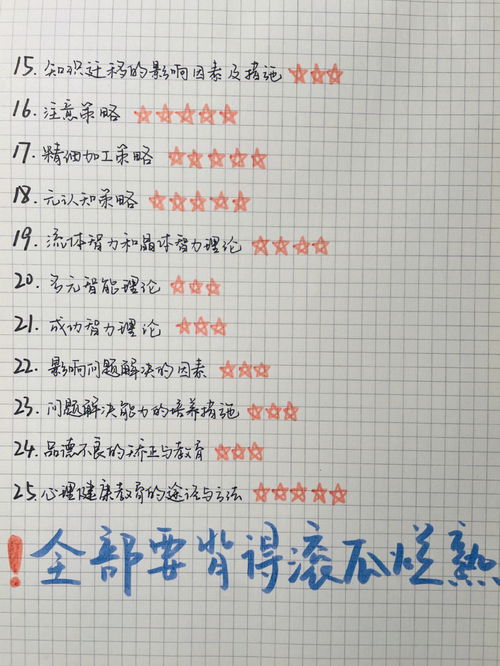 15. 知识迁移的影响因素及措施 ☆☆☆
16. 注意策略 ☆☆☆☆☆
17. 精细加工策略 ☆☆☆☆☆
18. 元认知策略 ☆☆☆☆☆
19. 流体智力和晶体智力理论 ☆☆☆☆
20. 多元智能理论 ☆☆☆
21. 成功智力理论 ☆☆☆
22. 影响问题解决的因素 ☆☆☆
23. 问题解决能力的培养措施 ☆☆☆
24. 品德不良的矫正与教育 ☆☆☆
25. 心理健康教育的途径与方法 ☆☆☆☆☆
!全部要背得滚瓜烂熟